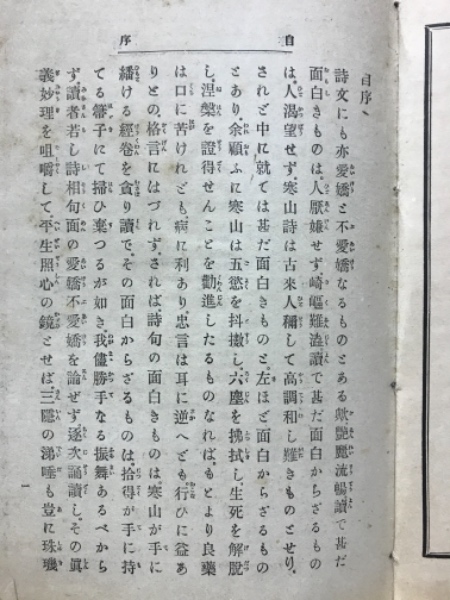 自序
自序
詩文にも亦愛嬌と不愛嬌なるものとある歟艶麗流暢讀で甚だ
面白きものは、人厭嫌せず崎嶇難澁讀で甚だ面白からざるもの
は、人渴望せず、寒山詩は古來人稱して高調和し難きものとせり、
されど中に就ては甚だ面白きものと、左ほど面白からざるもの
とあり、余顧ふに寒山は五慾を抖擻し、六塵を拂拭し、生死を解脫
し、涅槃を證得せんことを勸進したるものなれば、もとより良藥
は口に苦けれども、病に利あり、忠言は耳に逆へども、行ひに益あ
りとの格言にはづれず、されば、詩句の面白きものは、寒山が手に
繙ける經卷を貪り讀で、その面白からざるものは、拾得が手に持
てる箒子にて掃ひ棄つるが如き、我儘勝手なる振舞あるべから
ず、讀者若し詩相句面の愛嬌不愛嬌を論ぜず逐次誦讀し、その眞
義妙理を咀嚼して、平生照心の鏡とせば三隱の涕唾も豈に珠璣
一